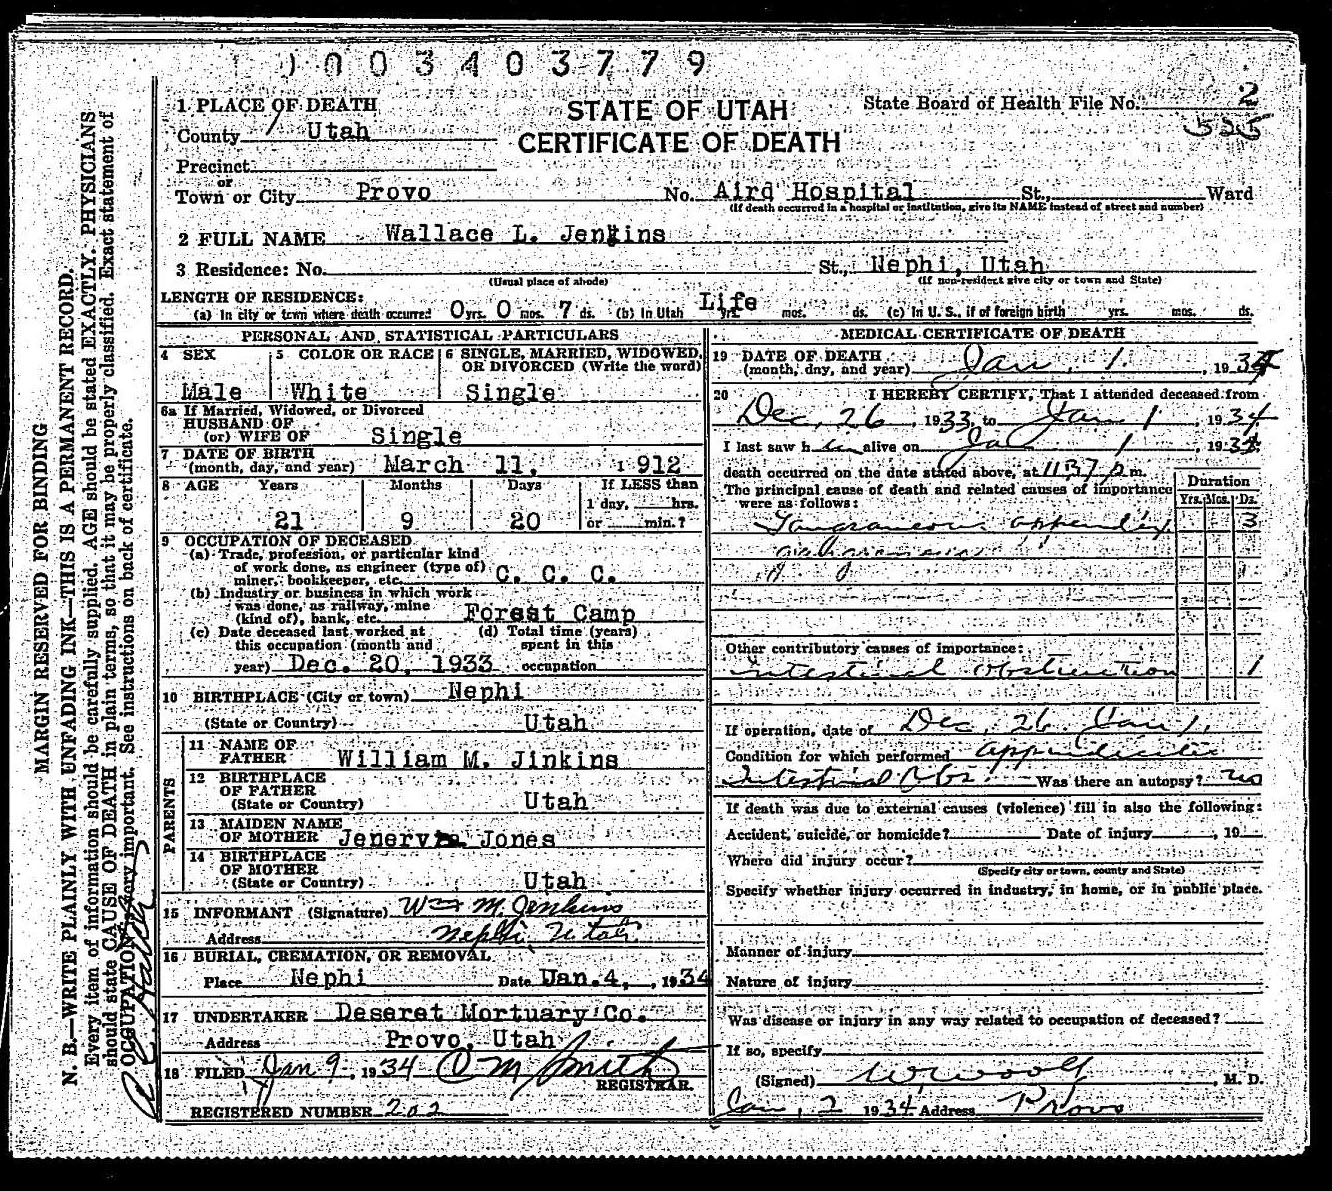 0003403779
STATE OF UTAH
CERTIFICATE OF DEATH
State Board of Health File No. 2
525
1 PLACE OF DEATH
County Utah
Precinct
or
Town or City Provo No. Aird Hospital St., Ward
(If death occurred in a hospital or institution, give its NAME instead of street and number)
2 FULL NAME Wallace L. Jenkins
3 Residence: No. St., Nephi, Utah
(Usual place of abode) (If non-resident give city or town and State)
LENGTH OF RESIDENCE:
(a) In city or town where death occurred 0 yrs. 0 mos. 7 ds. (b) In Utah Life yrs. mos. ds. (c) In U. S., if of foreign birth yrs. mos. ds.
PERSONAL AND STATISTICAL PARTICULARS
4 SEX 5 COLOR OR RACE 6 SINGLE, MARRIED, WIDOWED, OR DIVORCED (Write the word)
Male White Single
6a If Married, Widowed, or Divorced
HUSBAND OF
(or) WIFE OF Single
7 DATE OF BIRTH
(month, day, and year) March 11, 1912
8 AGE Years Months Days If LESS than
1 day, hrs.
21 9 20 or min.?
9 OCCUPATION OF DECEASED
(a) Trade, profession, or particular kind
of work done, as engineer (type of)
miner, bookkeeper, etc. C. C. C.
(b) Industry or business in which work
was done, as railway, mine
(kind of), bank, etc. Forest Camp
(c) Date deceased last worked at (d) Total time (years)
this occupation (month and spent in this
year) Dec. 20, 1933 occupation
10 BIRTHPLACE (City or town) Nephi
(State or Country) Utah
PARENTS
11 NAME OF
FATHER William M. Jinkins
12 BIRTHPLACE
OF FATHER
(State or Country) Utah
13 MAIDEN NAME
OF MOTHER Jenervia Jones
14 BIRTHPLACE
OF MOTHER
(State or Country) Utah
15 INFORMANT (Signature) Wm M. Jenkins
Address Nephi, Utah
16 BURIAL, CREMATION, OR REMOVAL
Place Nephi Date Jan. 4, , 1934
17 UNDERTAKER Deseret Mortuary Co.
Address Provo, Utah
18 FILED Jan 9, 1934 O M Smith
REGISTRAR.
REGISTERED NUMBER 202
MEDICAL CERTIFICATE OF DEATH
19 DATE OF DEATH
(month, day, and year) Jan. 1. , 1934
20 I HEREBY CERTIFY, That I attended deceased from
Dec, 26, 1933, to Jan 1, 1934
I last saw h alive on Ja 1, 1934
death occurred on the date stated above, at 1137 p m.
The principal cause of death and related causes of importance
were as follows:
Duration
Yrs. Mos. Dz.
appendix 3
Other contributory causes of importance:
Intestinal obstruction 1
If operation, date of Dec, 26 Jan 1,
Condition for which performed appendicitis
Intestinal Obs. Was there an autopsy? no
If death was due to external causes (violence) fill in also the following:
Accident, suicide, or homicide? Date of injury , 19
Where did injury occur?
(Specify city or town, county and State)
Specify whether injury occurred in industry, in home, or in public place.
Manner of injury
Nature of injury
Was disease or injury in any way related to occupation of deceased?
If so, specify
(Signed) W Woolf , M. D.
Jan, 2 1934 Address Provo
MARGIN RESERVED FOR BINDING
N. B.—WRITE PLAINLY WITH UNFADING INK—THIS IS A PERMANENT RECORD.
Every item of information should be carefully supplied. AGE should be stated EXACTLY. PHYSICIANS
should state CAUSE OF DEATH in plain terms, so that it may be properly classified. Exact statement of
OCCUPATION is very important. See instructions on back of certificate.